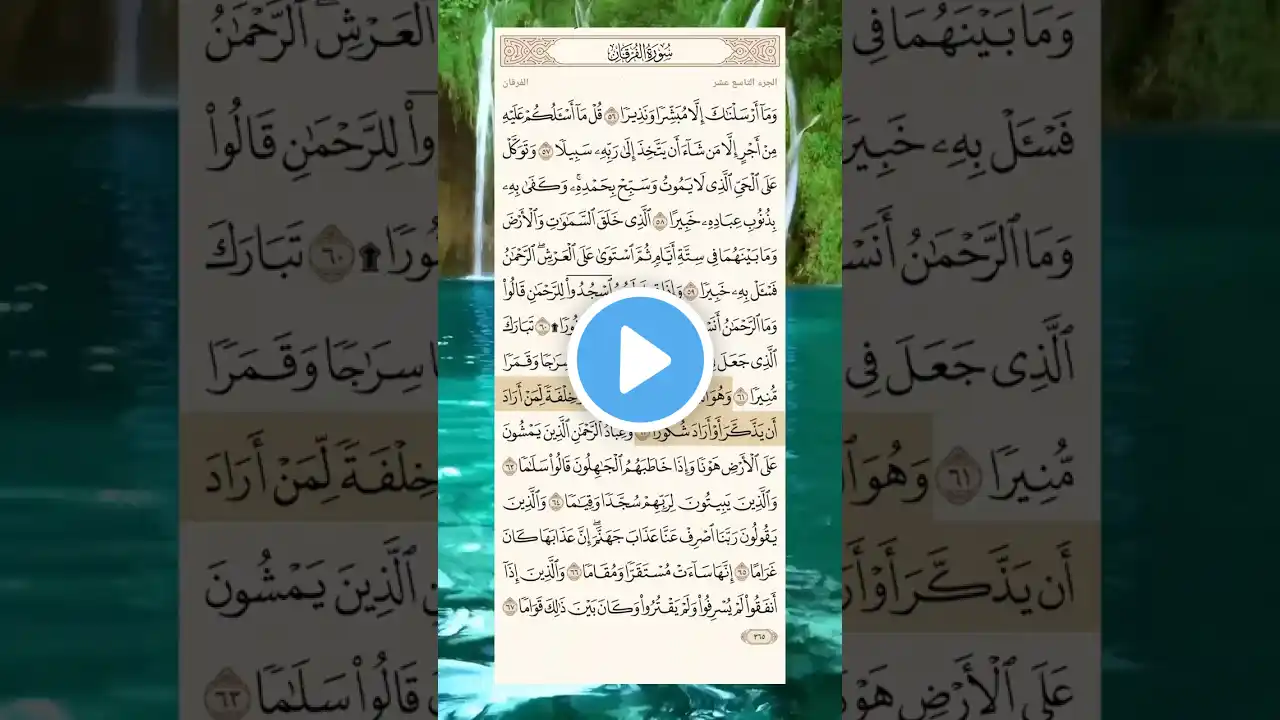 سُورَةُ الفُرْقَانِ
الجزء التاسع عشر
الفرقان
وَمَآ أَرْسَلْنَٰكَ إِلَّا مُبَشِّرًا وَنَذِيرًا ٥٦ قُلْ مَآ أَسْـَٔلُكُمْ عَلَيْهِ
مِنْ أَجْرٍ إِلَّا مَن شَآءَ أَن يَتَّخِذَ إِلَىٰ رَبِّهِۦ سَبِيلًا ٥٧ وَتَوَكَّلْ
عَلَى ٱلْحَىِّ ٱلَّذِى لَا يَمُوتُ وَسَبِّحْ بِحَمْدِهِۦۚ وَكَفَىٰ بِهِۦ
بِذُنُوبِ عِبَادِهِۦ خَبِيرًا ٥٨ ٱلَّذِى خَلَقَ ٱلسَّمَٰوَٰتِ وَٱلْأَرْضَ
وَمَا بَيْنَهُمَا فِى سِتَّةِ أَيَّامٍ ثُمَّ ٱسْتَوَىٰ عَلَى ٱلْعَرْشِۖ ٱلرَّحْمَٰنُ
فَسْـَٔلْ بِهِۦ خَبِيرًا ٥٩ ٱسْجُدُوا۟ لِلرَّحْمَٰنِ قَالُوا۟
وَمَا ٱلرَّحْمَٰنُ ۩ ٦٠ تَبَارَكَ
ٱلَّذِى جَعَلَ سِرَٰجًا وَقَمَرًا
مُّنِيرًا ٦١ خِلْفَةً لِّمَنْ أَرَادَ
أَن يَذَّكَّرَ أَوْ أَرَادَ شُكُورًا وَعِبَادُ ٱلرَّحْمَٰنِ ٱلَّذِينَ يَمْشُونَ
عَلَى ٱلْأَرْضِ هَوْنًا وَإِذَا خَاطَبَهُمُ ٱلْجَٰهِلُونَ قَالُوا۟ سَلَٰمًا ٦٣
وَٱلَّذِينَ يَبِيتُونَ لِرَبِّهِمْ سُجَّدًا وَقِيَٰمًا ٦٤ وَٱلَّذِينَ
يَقُولُونَ رَبَّنَا ٱصْرِفْ عَنَّا عَذَابَ جَهَنَّمَۖ إِنَّ عَذَابَهَا كَانَ
غَرَامًا ٦٥ إِنَّهَا سَآءَتْ مُسْتَقَرًّا وَمُقَامًا ٦٦ وَٱلَّذِينَ إِذَآ
أَنفَقُوا۟ لَمْ يُسْرِفُوا۟ وَلَمْ يَقْتُرُوا۟ وَكَانَ بَيْنَ ذَٰلِكَ قَوَامًا ٦٧
٣٦٥